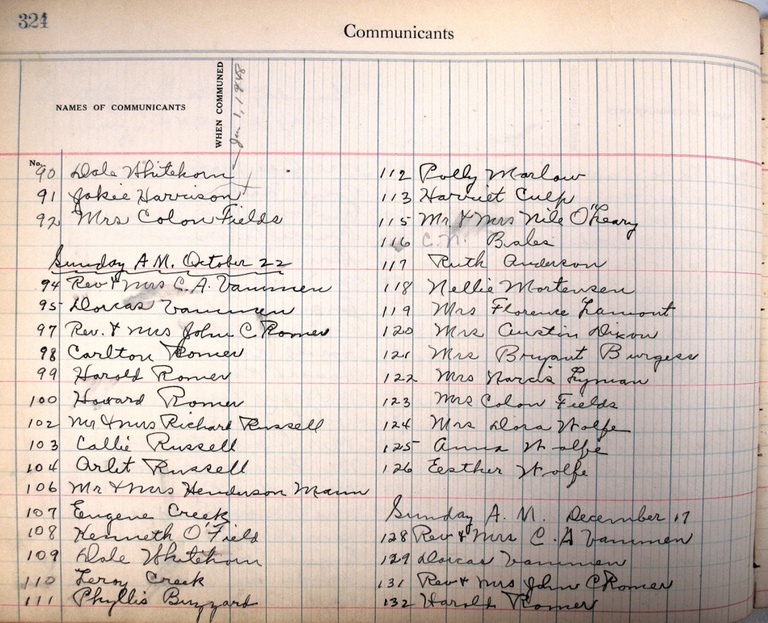 324
Communicants
NAMES OF COMMUNICANTS
WHEN COMMUNED
Jan 1, 1948
No.
90 Dale Whitehorn
91 Jakie Harrison
92 Mrs Colon Fields
Sunday A.M. October 22
94 Rev & Mrs C.A. Vammen
95 Dorcas Vammen
97 Rev. & Mrs John C Romer
98 Carlton Romer
99 Harold Romer
100 Howard Romer
102 Mr & Mrs Richard Russell
103 Callie Russell
104 Arlet Russell
106 Mr & Mrs Henderson Mann
107 Eugene Creek
108 Kenneth O'Field
109 Dale Whitehorn
110 Leroy Creek
111 Phyllis Buzzard
112 Polly Marlow
113 Harriet Culp
115 Mr & Mrs Nile O'Leary
116 C.N. Bales
117 Ruth Anderson
118 Nellie Mortensen
119 Mrs Florence Lamont
120 Mrs Curtin Dixon
121 Mrs Bryant Burgess
122 Mrs Narcis Pyman
123 Mrs Colon Fields
124 Mrs Dora Wolfe
125 Anna Wolfe
126 Eesther Wolfe
Sunday A.M. December 17
128 Rev & Mrs C.A Vammen
129 Dorcas Vammen
131 Rev & Mrs John C Romer
132 Harold Romer